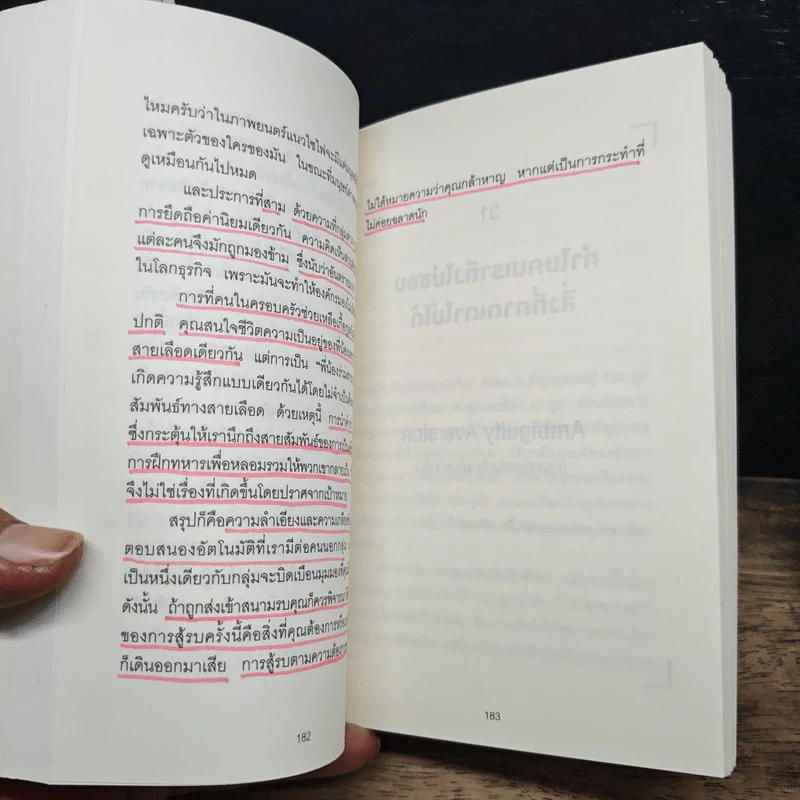 ไหมครับว่าในภาพยนตร์แนวไซไฟจะมี
เฉพาะตัวของใครของมัน ในขณะที่มนุษย์
ดูเหมือนกันไปหมด
และประการที่สาม ด้วยความที่กลุ่ม
การยึดถือค่านิยมเดียวกัน ความคิดเห็น
แต่ละคนจึงมักถูกมองข้าม ซึ่งนับว่าอันตราย
ในโลกธุรกิจ เพราะมันจะทำให้องค์กร
การที่คนในครอบครัวช่วยเหลือเกื้อกูล
ปกติ คุณสนใจชีวิตความเป็นอยู่ของพี่น้อง
สายเลือดเดียวกัน แต่การเป็น "พี่น้องร่วม
เกิดความรู้สึกแบบเดียวกันได้โดยไม่จำเป็น
สัมพันธ์ทางสายเลือด ด้วยเหตุนี้ การนำ
ซึ่งกระตุ้นให้เรานึกถึงสายสัมพันธ์ของการเป็น
การฝึกทหารเพื่อหลอมรวมให้พวกเขากลายเป็น
จึงไม่ใช่เรื่องที่เกิดขึ้นโดยปราศจากเป้าหมาย
สรุปก็คือความลำเอียงและความเกลียด
ตอบสนองอัตโนมัติที่เรามีต่อคนนอกกลุ่ม
เป็นหนึ่งเดียวกับกลุ่มจะบิดเบือนมุมมอง
ดังนั้น ถ้าถูกส่งเข้าสนามรบคุณก็ควรพิจารณา
ของการสู้รบครั้งนี้คือสิ่งที่คุณต้องการหรือ
ก็เดินออกมาเสีย การสู้รบตามความต้อง
182
ไม่ได้หมายความว่าคุณกล้าหาญ หากแต่เป็นการกระทำที่
ไม่ค่อยฉลาดนัก
183